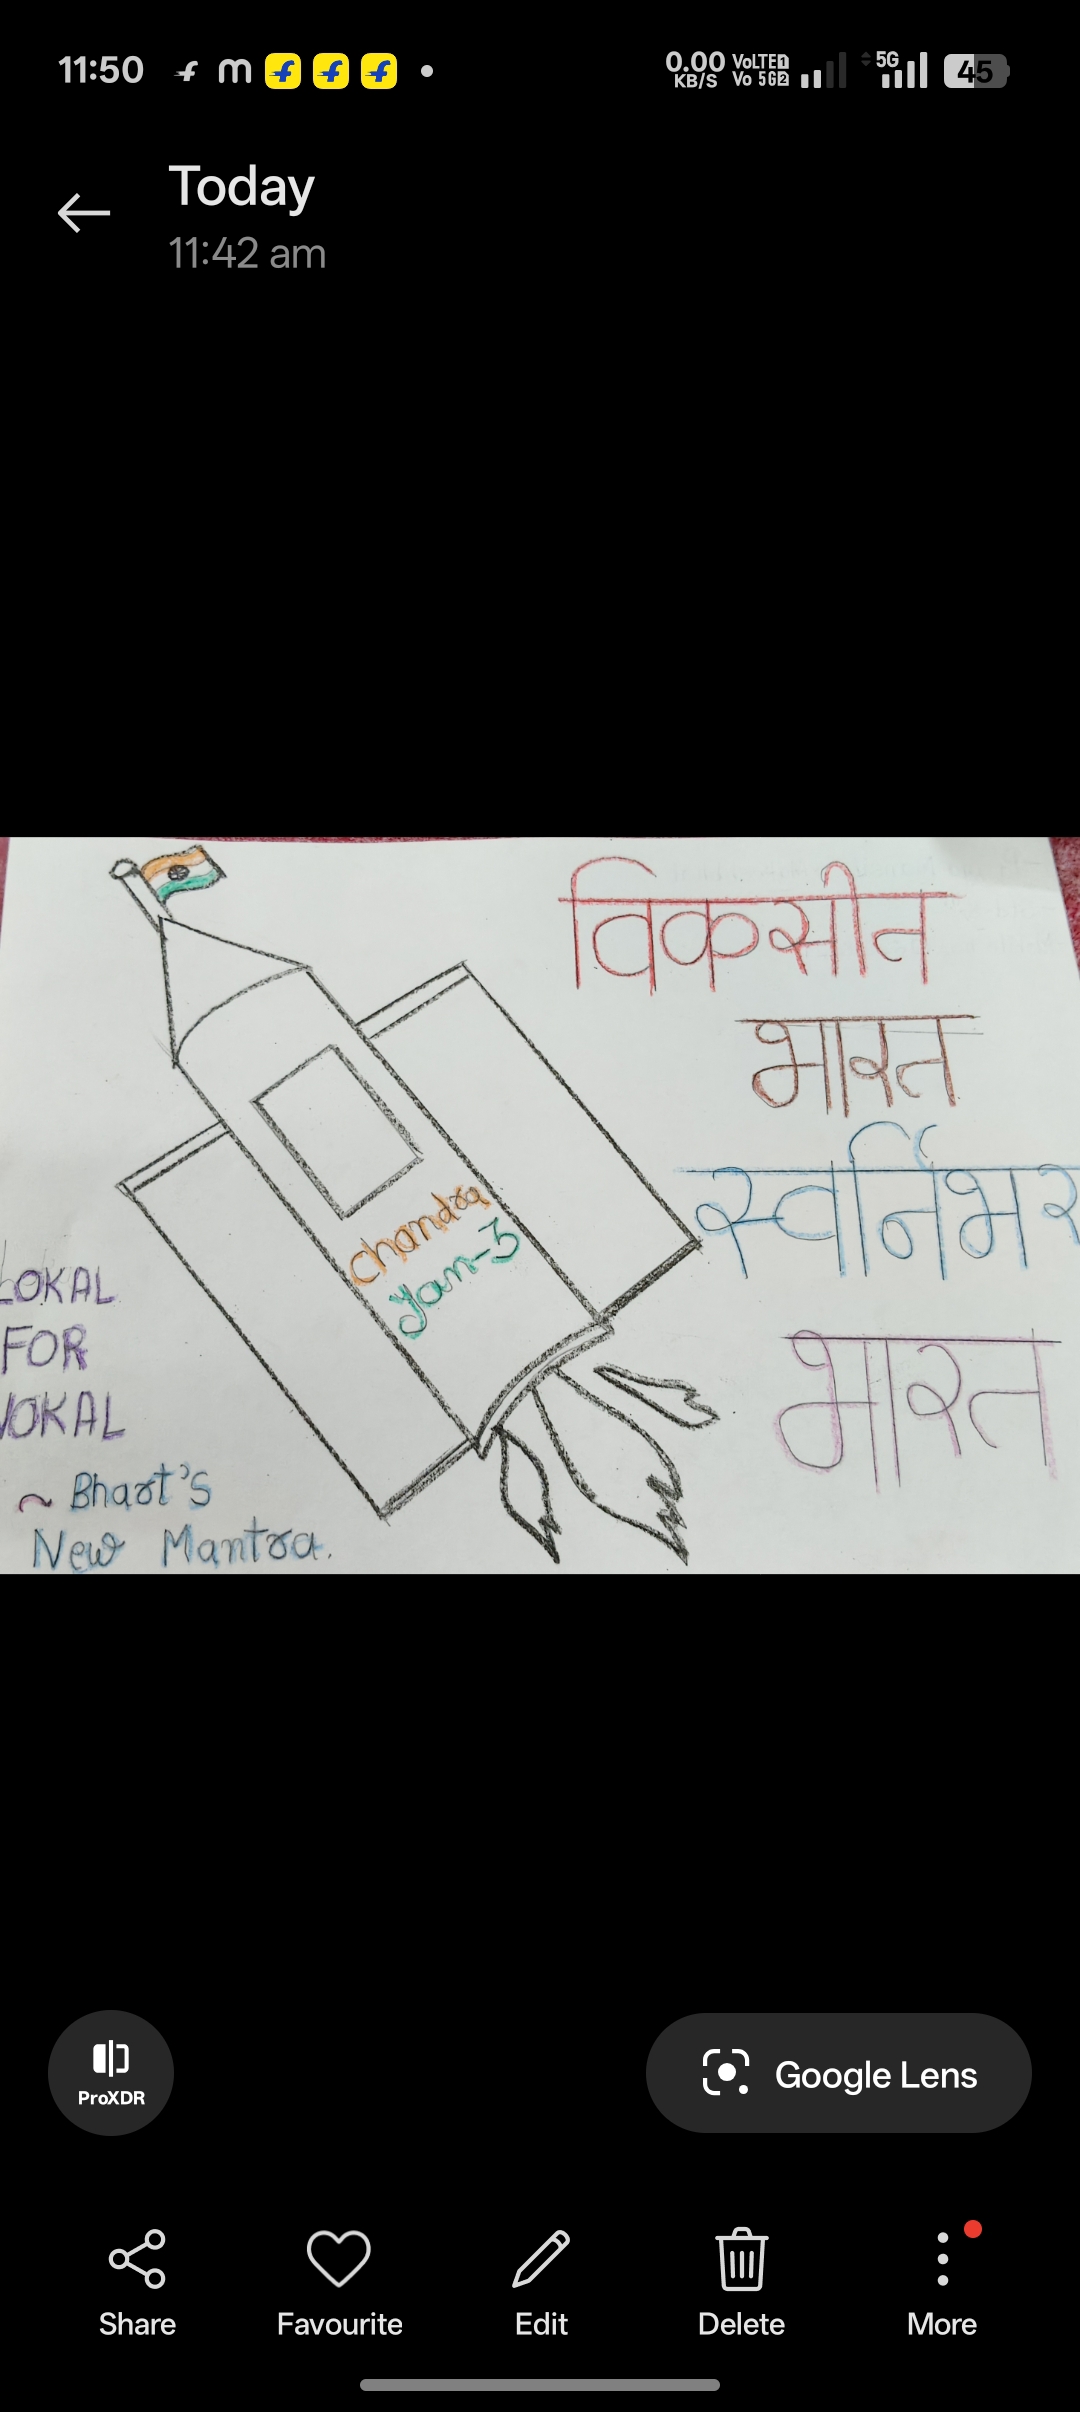 11:50
0.00 KB/S VoLTE1 Vo 5G2 5G 45
Today
11:42 am
विकसीत
भारत
स्वर्निभर
भारत
chandra
yan-3
LOKAL
FOR
VOKAL
~ Bhart's
New Mantra.
ProXDR
Google Lens
Share Favourite Edit Delete More